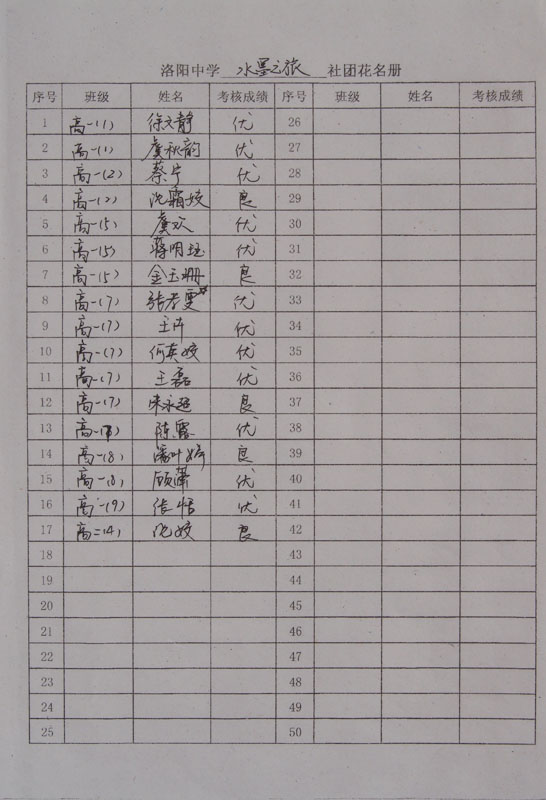 洛阳中学 水墨之旅 社团花名册
序号 班级 姓名 考核成绩 序号 班级 姓名 考核成绩
1 高一(1) 徐文静 优 26
2 高一(1) 虞秋韵 优 27
3 高一(2) 蔡宁 优 28
4 高一(2) 沈霜姣 良 29
5 高一(5) 虞欢 优 30
6 高一(5) 蒋明珏 优 31
7 高一(5) 金玉珊 良 32
8 高一(7) 张孝雯 优 33
9 高一(7) 王卉 优 34
10 高一(7) 何英姣 优 35
11 高一(7) 王磊 优 36
12 高一(7) 朱永超 良 37
13 高一(8) 陈露 优 38
14 高一(8) 潘叶婷 良 39
15 高一(8) 顾萧 优 40
16 高一(9) 张恬 优 41
17 高二(4) 沈姣 良 42
18 43
19 44
20 45
21 46
22 47
23 48
24 49
25 50